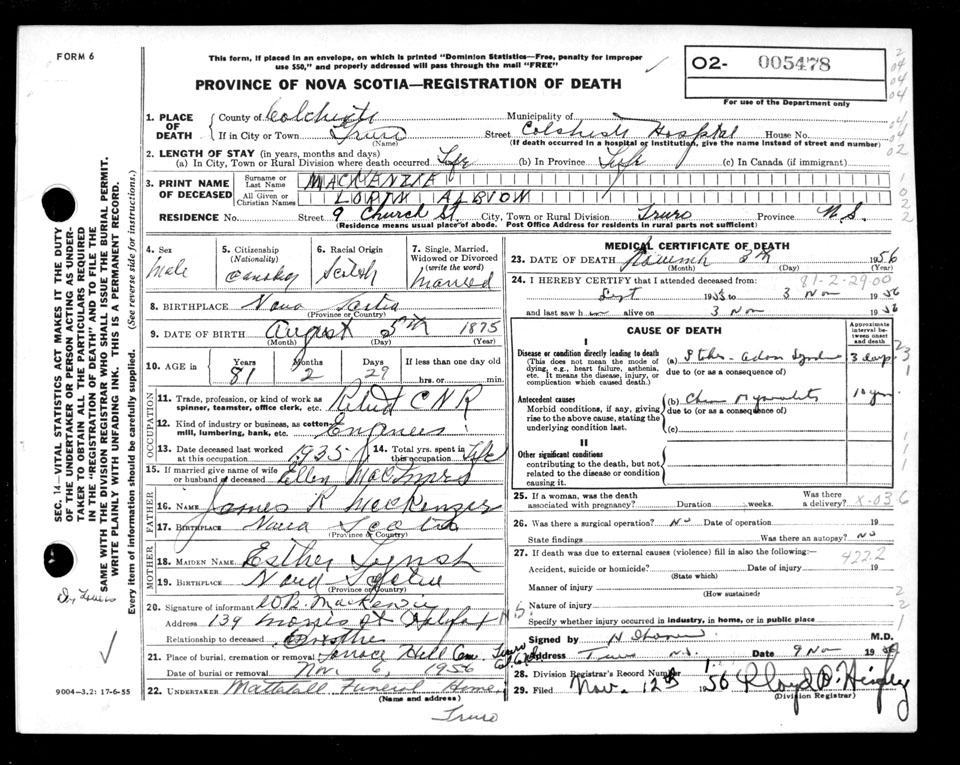 FORM 6
This form, if placed in an envelope, on which is printed "Dominion Statistics—Free, penalty for improper use $50," and properly addressed will pass through the mail "FREE"
O2- 005478
For use of the Department only
PROVINCE OF NOVA SCOTIA—REGISTRATION OF DEATH
1. PLACE OF DEATH
County of Colchester Municipality of
If in City or Town Truro Street Colchester Hospital House No.
(Name) (If death occurred in a hospital or institution, give the name instead of street and number)
2. LENGTH OF STAY (in years, months and days)
(a) In City, Town or Rural Division where death occurred Life (b) In Province Life (c) In Canada (if immigrant)
3. PRINT NAME OF DECEASED
Surname or Last Name MACKENZIE
All Given or Christian Names LORIN ALBION
RESIDENCE No. Street 9 Church St. City, Town or Rural Division Truro Province N.S.
(Residence means usual place of abode. Post Office Address for residents in rural parts not sufficient)
4. Sex Male
5. Citizenship (Nationality)
6. Racial Origin Scotch
7. Single, Married, Widowed or Divorced (write the word) Married
8. BIRTHPLACE Nova Scotia
(Province or Country)
9. DATE OF BIRTH August 5th 1875
(Month) (Day) (Year)
10. AGE in Years 81 Months 2 Days 29 If less than one day old hrs. or min.
OCCUPATION
11. Trade, profession, or kind of work as spinner, teamster, office clerk, etc. Retired CNR
12. Kind of industry or business, as cotton-mill, lumbering, bank, etc. Engineer
13. Date deceased last worked at this occupation 1935
14. Total yrs. spent in this occupation Life
15. If married give name of wife or husband of deceased Ellen
FATHER
16. NAME James R MacKenzie
17. BIRTHPLACE Nova Scotia
(Province or Country)
MOTHER
18. MAIDEN NAME Esther Lynch
19. BIRTHPLACE Nova Scotia
(Province or Country)
20. Signature of informant MacKenzie
Address 139 Morris St Halifax N.S.
Relationship to deceased
21. Place of burial, cremation or removal Terrace Hill Cem. Truro
Date of burial or removal Nov 6, 1956
22. UNDERTAKER Mattatall Funeral Home,
(Name and address)
Truro
MEDICAL CERTIFICATE OF DEATH
23. DATE OF DEATH November 3rd 1956
(Month) (Day) (Year)
24. I HEREBY CERTIFY that I attended deceased from: 81-2-29-00
Sept 1955 to 3 Nov 1956
and last saw him alive on 3 Nov 1956
CAUSE OF DEATH
Approximate interval between onset and death
I
Disease or condition directly leading to death
(This does not mean the mode of dying, e.g., heart failure, asthenia, etc. It means the disease, injury, or complication which caused death.)
(a) Stokes-Adams Syndrome 3 days
due to (or as a consequence of)
Antecedent causes
Morbid conditions, if any, giving rise to the above cause, stating the underlying condition last.
(b) Chron Myocarditis 10 yrs.
due to (or as a consequence of)
(c)
II
Other significant conditions
contributing to the death, but not related to the disease or condition causing it.
25. If a woman, was the death associated with pregnancy? Duration weeks. Was there a delivery? X-036
26. Was there a surgical operation? No Date of operation 19
State findings Was there an autopsy? No
27. If death was due to external causes (violence) fill in also the following:— 4222
Accident, suicide or homicide? Date of injury 19
(State which)
Manner of injury
(How sustained)
Nature of injury
Specify whether injury occurred in industry, in home, or in public place
Signed by M.D.
Address Truro N.S. Date 9 Nov 1956
28. Division Registrar's Record Number
29. Filed Nov. 12th 1956
(Division Registrar)
SEC. 14—VITAL STATISTICS ACT MAKES IT THE DUTY OF THE UNDERTAKER OR PERSON ACTING AS UNDERTAKER TO OBTAIN ALL THE PARTICULARS REQUIRED IN THE "REGISTRATION OF DEATH" AND TO FILE THE SAME WITH THE DIVISION REGISTRAR WHO SHALL ISSUE THE BURIAL PERMIT.
WRITE PLAINLY WITH UNFADING INK. THIS IS A PERMANENT RECORD.
Every item of information should be carefully supplied. (See reverse side for instructions.)
9004-3.2: 17-6-55